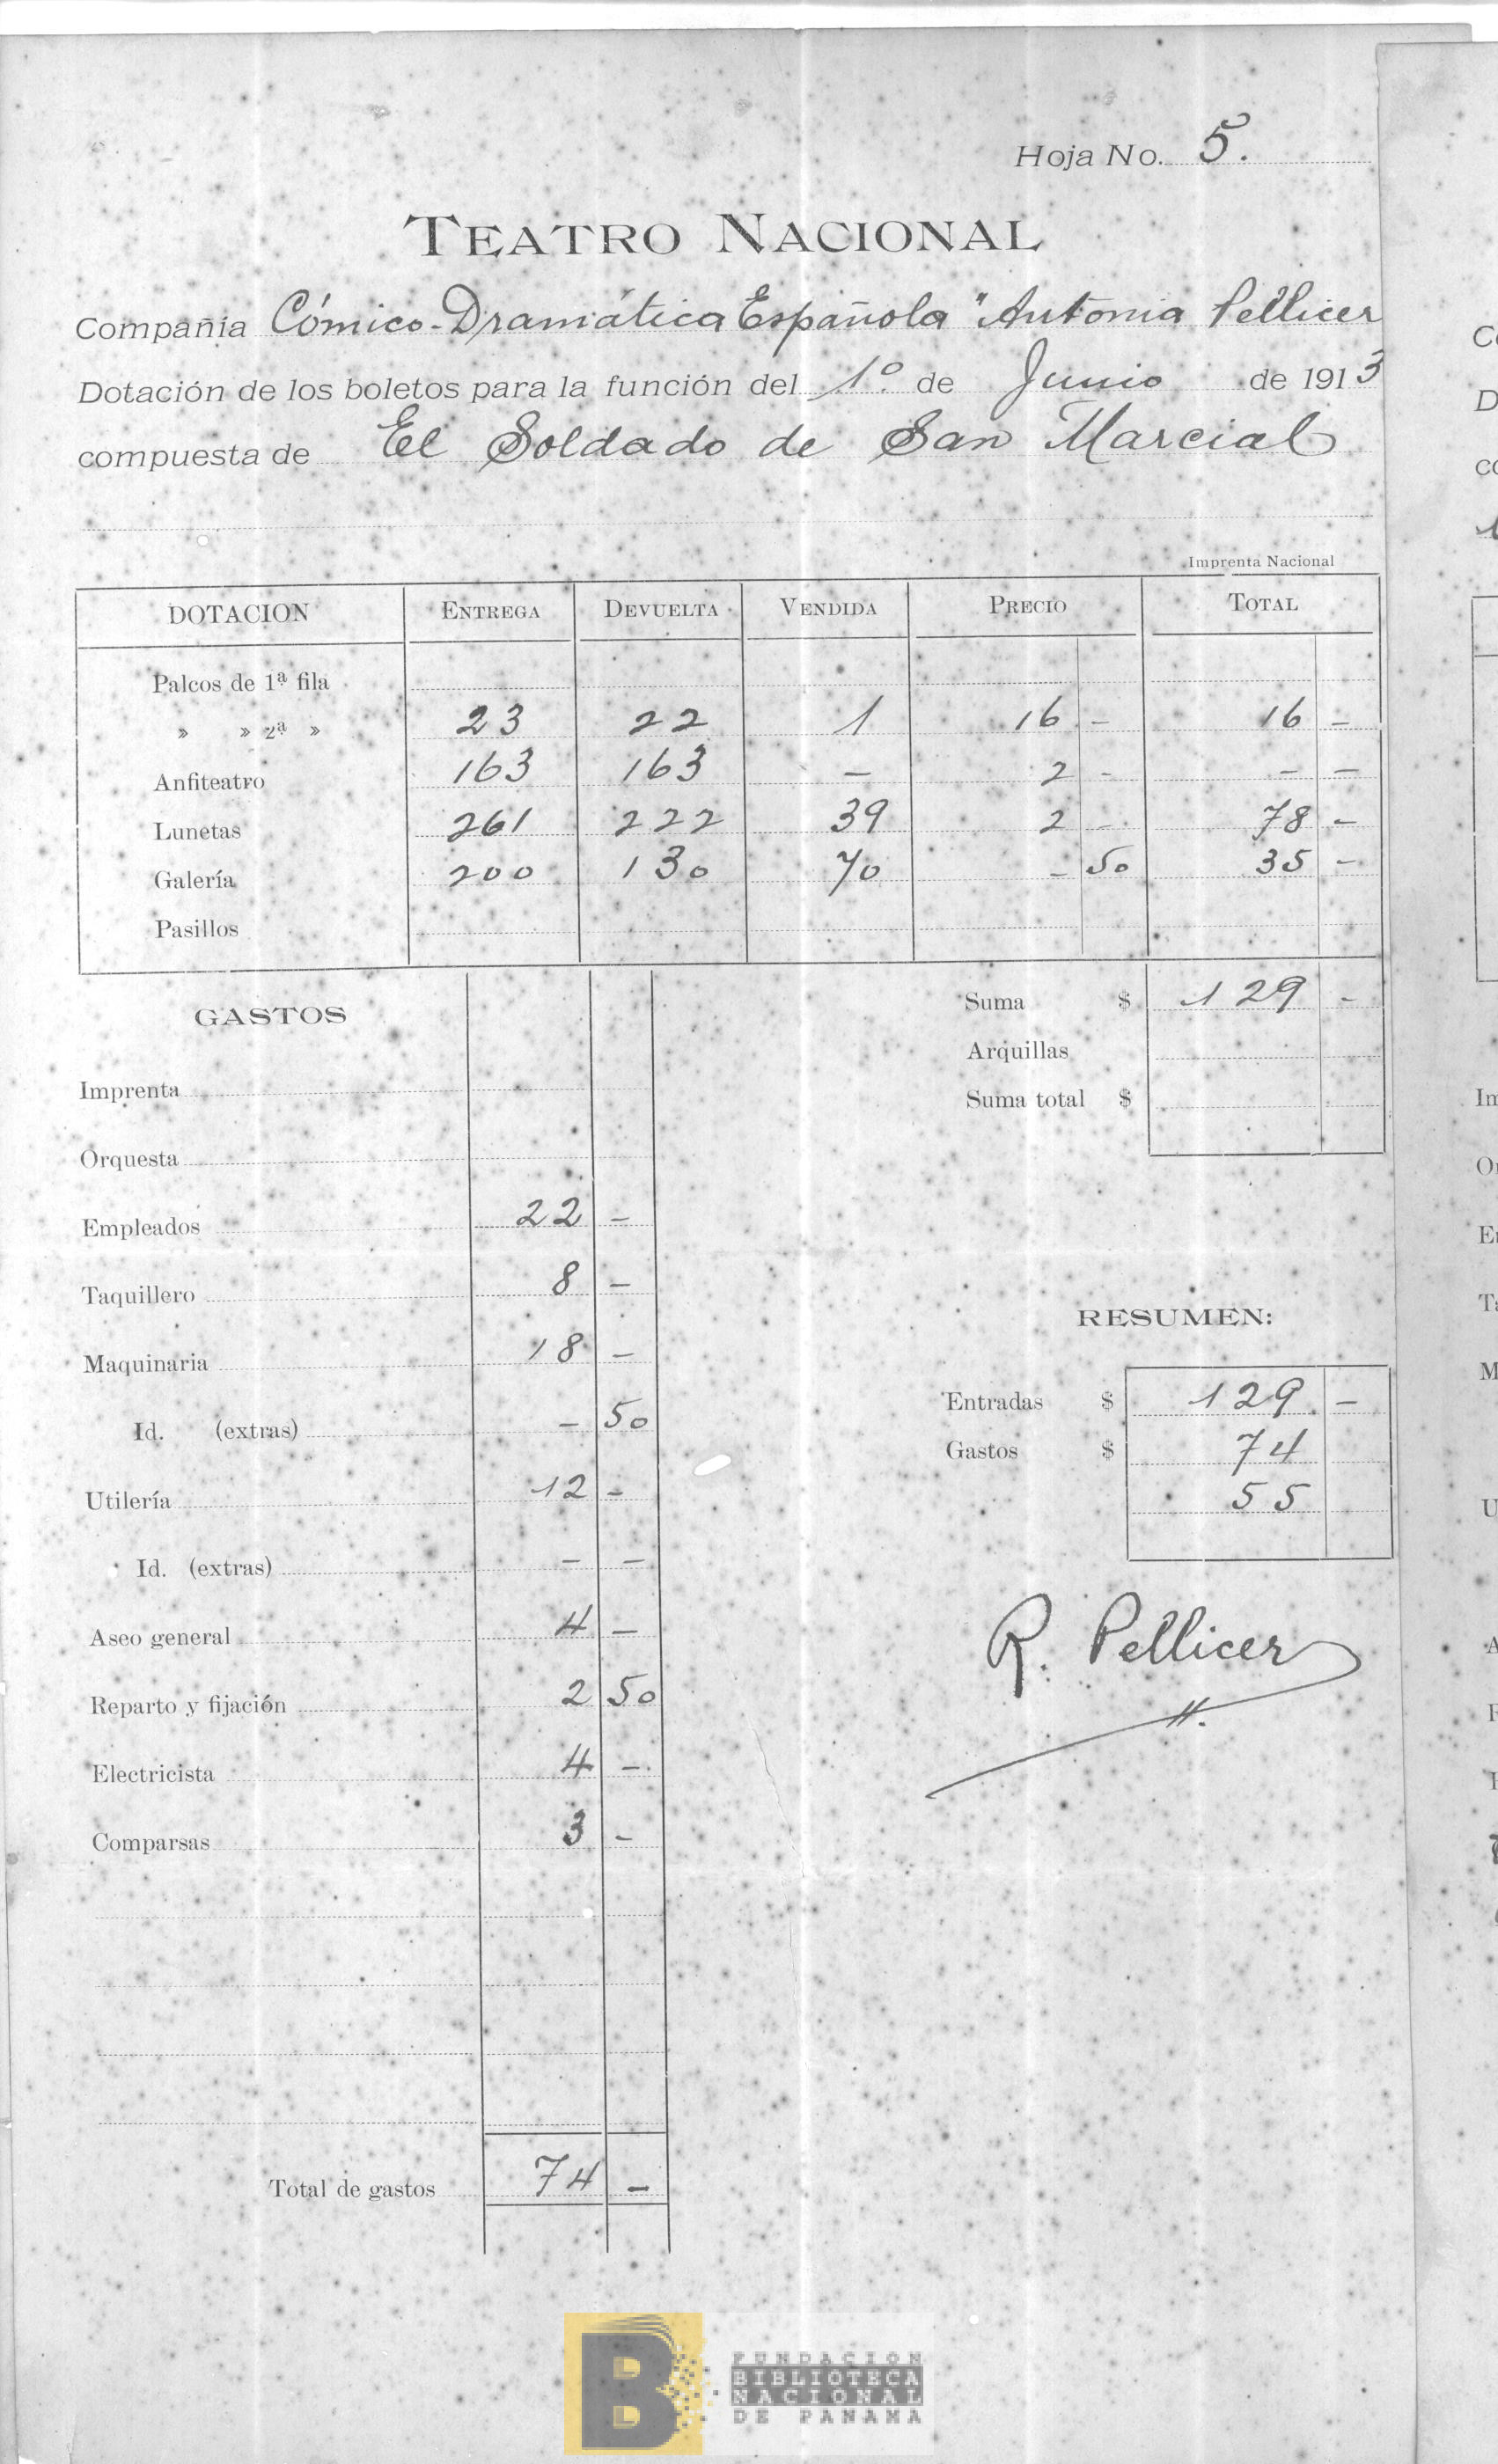 Hoja No. 5.
TEATRO NACIONAL
Compañía Cómico-Dramática Española "Antonia Pellicer
Dotación de los boletos para la función del 1º de Junio de 1913
compuesta de El Soldado de San Marcial
Imprenta Nacional
DOTACION ENTREGA DEVUELTA VENDIDA PRECIO TOTAL
Palcos de 1ª fila
» » 2ª » 23 22 1 16 - 16 -
Anfiteatro 163 163 - 2 - - -
Lunetas 261 222 39 2 - 78 -
Galería 200 130 70 - 50 35 -
Pasillos
Suma $ 129 -
Arquillas
Suma total $
GASTOS
Imprenta
Orquesta
Empleados 22 -
Taquillero 8 -
Maquinaria 18 -
Id. (extras) - 50
Utilería 12 -
Id. (extras) - -
Aseo general 4 -
Reparto y fijación 2 50
Electricista 4 -
Comparsas 3 -
Total de gastos 74 -
RESUMEN:
Entradas $ 129 -
Gastos $ 74
55
R. Pellicer
B FUNDACION
BIBLIOTECA
NACIONAL
DE PANAMA
C
D
co
Im
O
E
T
M
U
A